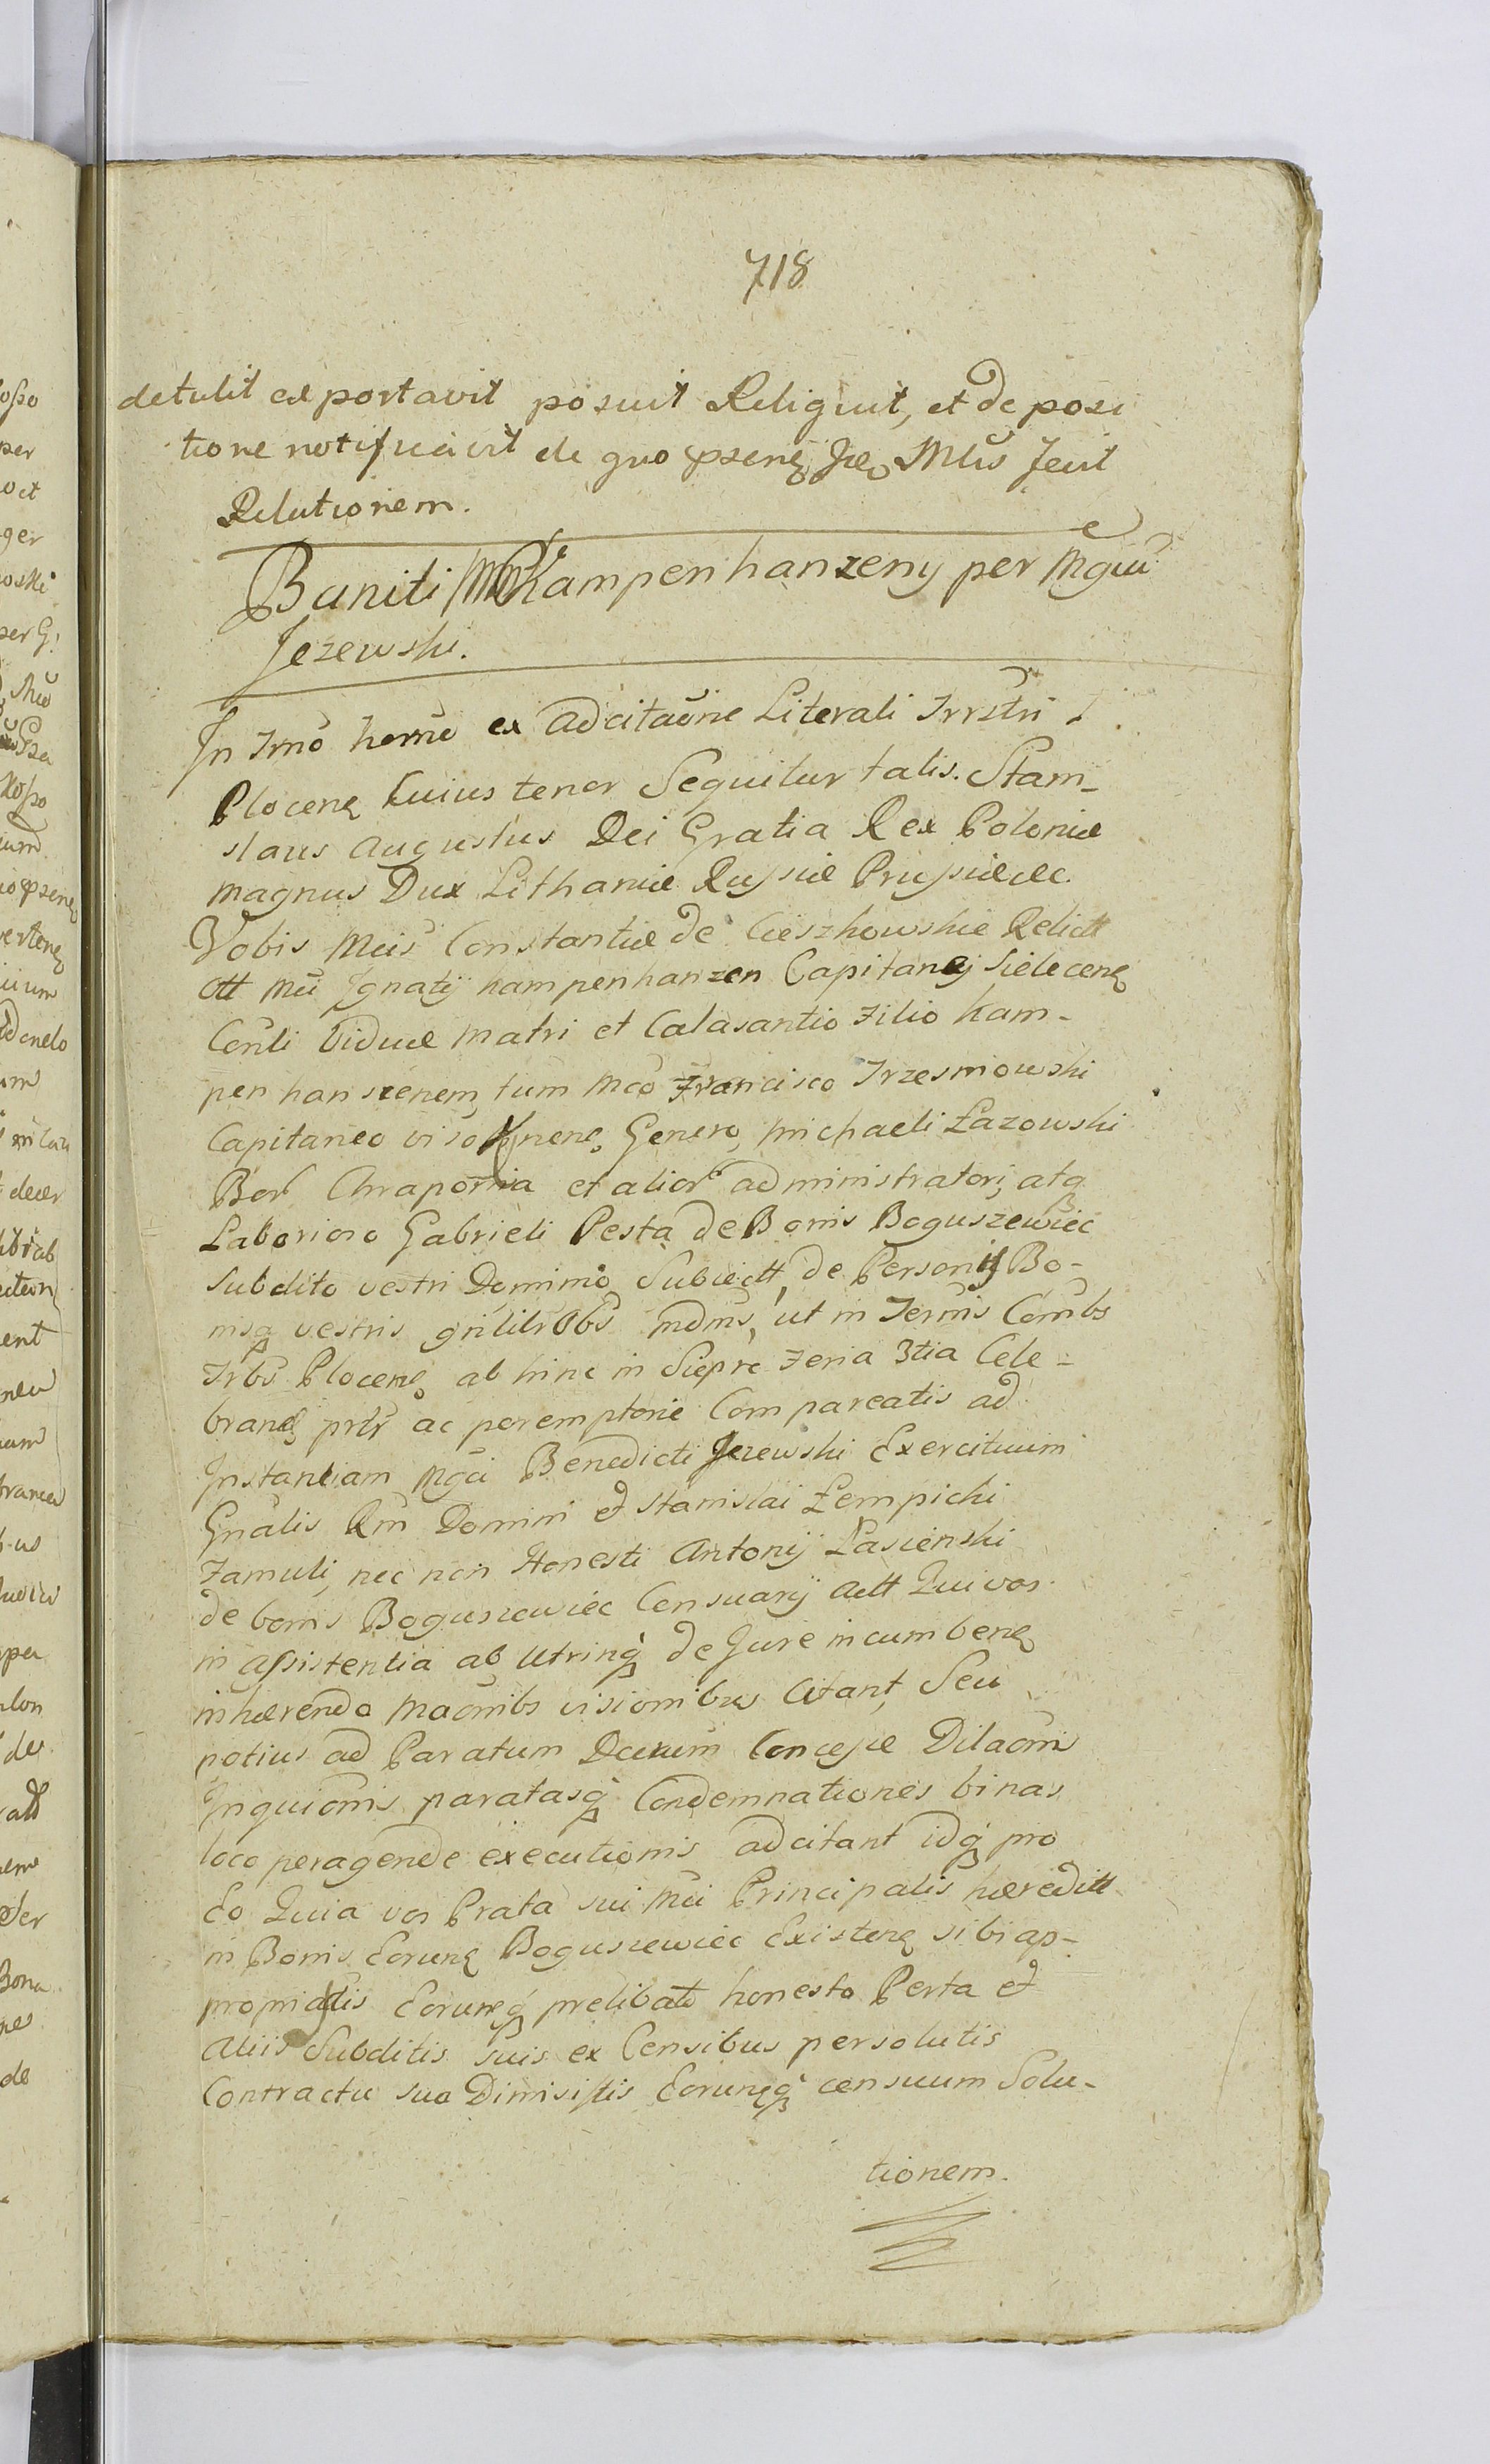 718
detulit et portavit posuit Reliquit, et de posi
tione notificavit de quo psens Jte Mtus fecit
Relationem.
Baniti MM Kampenhanzeny per Mgcu
Jezewski.
In Trno herno ex adcitaone Literali Trrstri
Plocens Cuius tenor Sequitur talis. Stani_
slaus Augustus Dei Gratia Rex Poloniæ
Magnus Dux Lithaniæ Russiæ Prussiæ etc.
Vobis Mcis Constantiæ de Cieszkowskie Relictt
ott Mci Ignatij Kampenhanzen Capitanej Sielecens
Conli Viduæ Matri et Calasantio Filio Kam-
pen hanszenem, tum Mco Francisco Trzesniowski
Capitaneo viso nens Genero, Michaeli Łazowski
Bor Chraponia et alior administratori, atq
Laborioso Gabrieli Pesta de Bonis Boguszewiec
Subdito vestri Dominio Subiectt, de Personis Bo-
nisq vestris gnlitr Obs mdms, ut in Termis Combs
Trbs Plocens ab hinc in Siepre Feria 3tia Cele-
brand prtr ac peremptorie Compareatis ad
Instantiam Mgci Benedicti Jezewski Exercituum
Gnalis Rm Domini et Stanislai Łempicki
Famuli, nec non Honesti Antonij Łasienski
de bonis Boguszewiec Censuarij Actt Qui vos
in assistentia ab utrinq de Jure incumbens
inhærendo Macnibs visionibus Citant, Seu
potius ad Paratum Dcrtum Concessæ Dilaonis
Inquionis paratasq Condemnationes binas
loco peragende executionis adcitant idq pro
Eo Quia vos Prata sui Mci Principalis hæreditt
in Bonis Eorund Boguszewiec Existens sibi ap-
propriatis Eorumq prelibato honesto Perta et
aliis Subditis suis ex Censibus persolutis
Contractu suo Dimisistis Eorumq censuum Solu-
tionem.